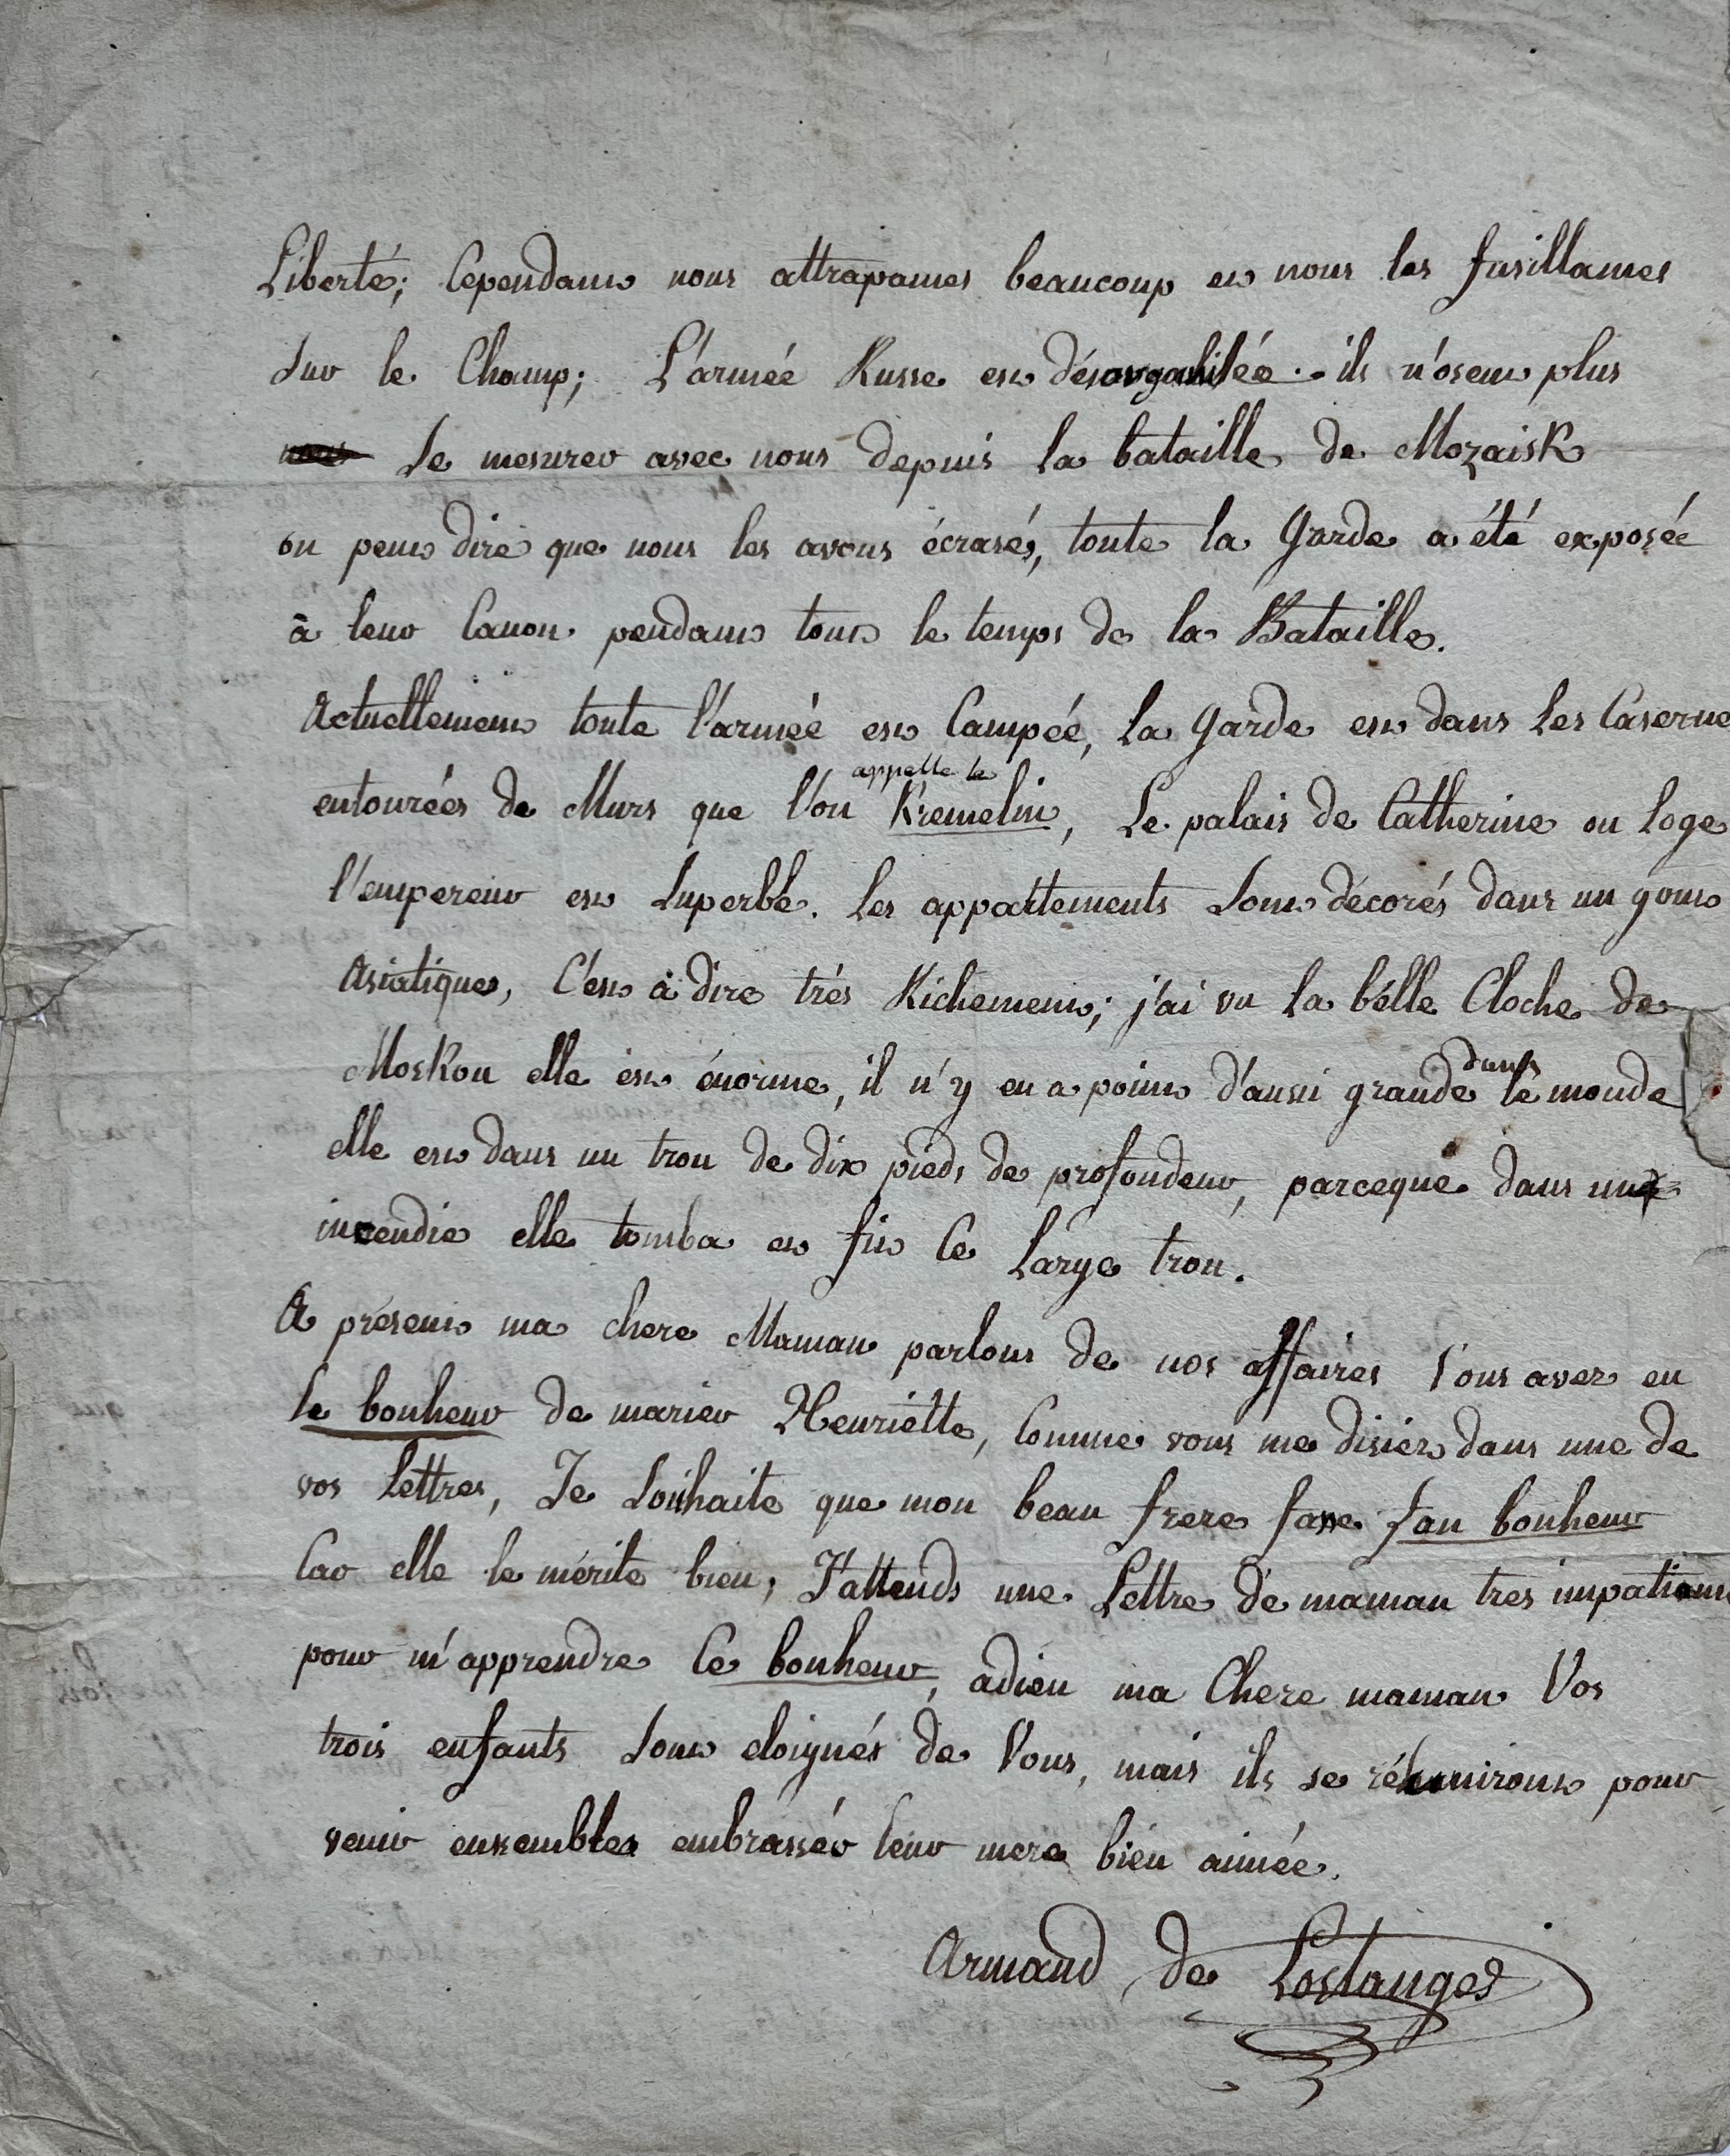 Liberté; Cependant nous attrapames beaucoup et nous les fusillames
sur le Champ; L'armée Russe est désorganisée .- ils n'osent plus
se mesurer avec nous depuis la bataille de MozaisK
on peut dire que nous les avons écrasés, toute la Garde a été exposée
à leur Canon pendant tout le temps de la Bataille.
Actuellement toute l'armée est Campée, la Garde est dans les Caserne
appelle le
entourées de Murs que l'on Kremelin, Le palais de Catherine ou loge
l'empereur est superbbe. les appartements sont décorés dans un gout
Asiatique, C'est à dire trés Richement; j'ai vu la bélle Cloche de
dans
MosKou elle est énorme, il n'y en a point d'aussi grande le monde
elle est dans un trou de dix pieds de profondeur, parceque dans un
incendie elle tomba et fit Ce Large trou.
A présent ma chere Maman parlons de nos affaires Vous avez eu
le bonheur de marier Henriétte, Comme vous me disiez dans une de
vos Lettres, Je souhaite que mon beau frere fasse san bonheur
Car elle le mérite bien, J'attends une Lettre de maman tres impatiem
pour m'apprendre Ce bonheur, adieu ma Chere maman Vos
trois enfants sont eloignés de Vous, mais ils se réhuniront pour
venir ensembles embrassér leur mere bien aimée.
Armand de Lostanges